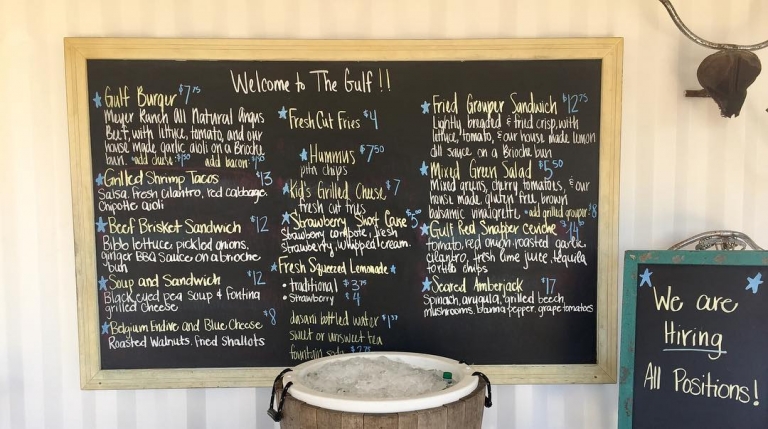 Welcome to The Gulf !!
Gulf Burger $7.75
Meyer Ranch All Natural Angus
Beef, with lettuce, tomato, and our
house made garlic aioli on a Brioche
bun. *add cheese: $1.50 add bacon:
Grilled Shrimp Tacos $13
Salsa, fresh cilantro, red cabbage,
Chipotle aioli
Beef Brisket Sandwich $12
Bibb lettuce, pickled onions,
ginger BBQ Sauce on a brioche
bun
Soup and Sandwich $12
Black eyed pea Soup & Fontina
grilled Cheese
Belgium Endive and Blue Cheese $8
Roasted Walnuts, Fried Shallots
Fresh Cut Fries $4
Hummus $7.50
pita chips
Kid's Grilled Cheese $7
fresh cut fries
Strawberry Short Cake
Strawberry compote, fresh
strawberry, whipped cream
Fresh Squeezed Lemonade
• traditional $3.75
• Strawberry $4
dasani bottled water
sweet or unsweet tea
fountain soda $2.75
Fried Grouper Sandwich $12.75
Lightly breaded & fried crisp, with
lettuce, tomato, & our house made lemon
dill sauce on a Brioche bun
Mixed Green Salad $5.50
Mixed greens, cherry tomatoes, & our
house made gluten free brown
balsamic vinaigrette *add grilled grouper: $8
Gulf Red Snapper Ceviche
tomato, red onion, roasted garlic
cilantro, fresh lime juice, tequila
tortilla chips
Seared Amberjack $17
Spinach, arugula, grilled beech
mushrooms, banana pepper, grape tomatoes
We are
Hiring
All Positions!